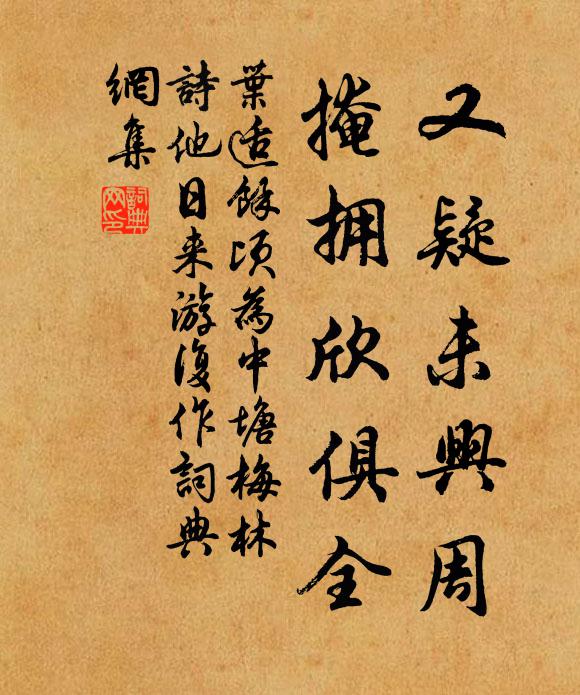 又疑未興周
掩拥欣俱全
葉适餘顷為中塘梅林
詩他日来游復作詞典
網集
詞典
网印